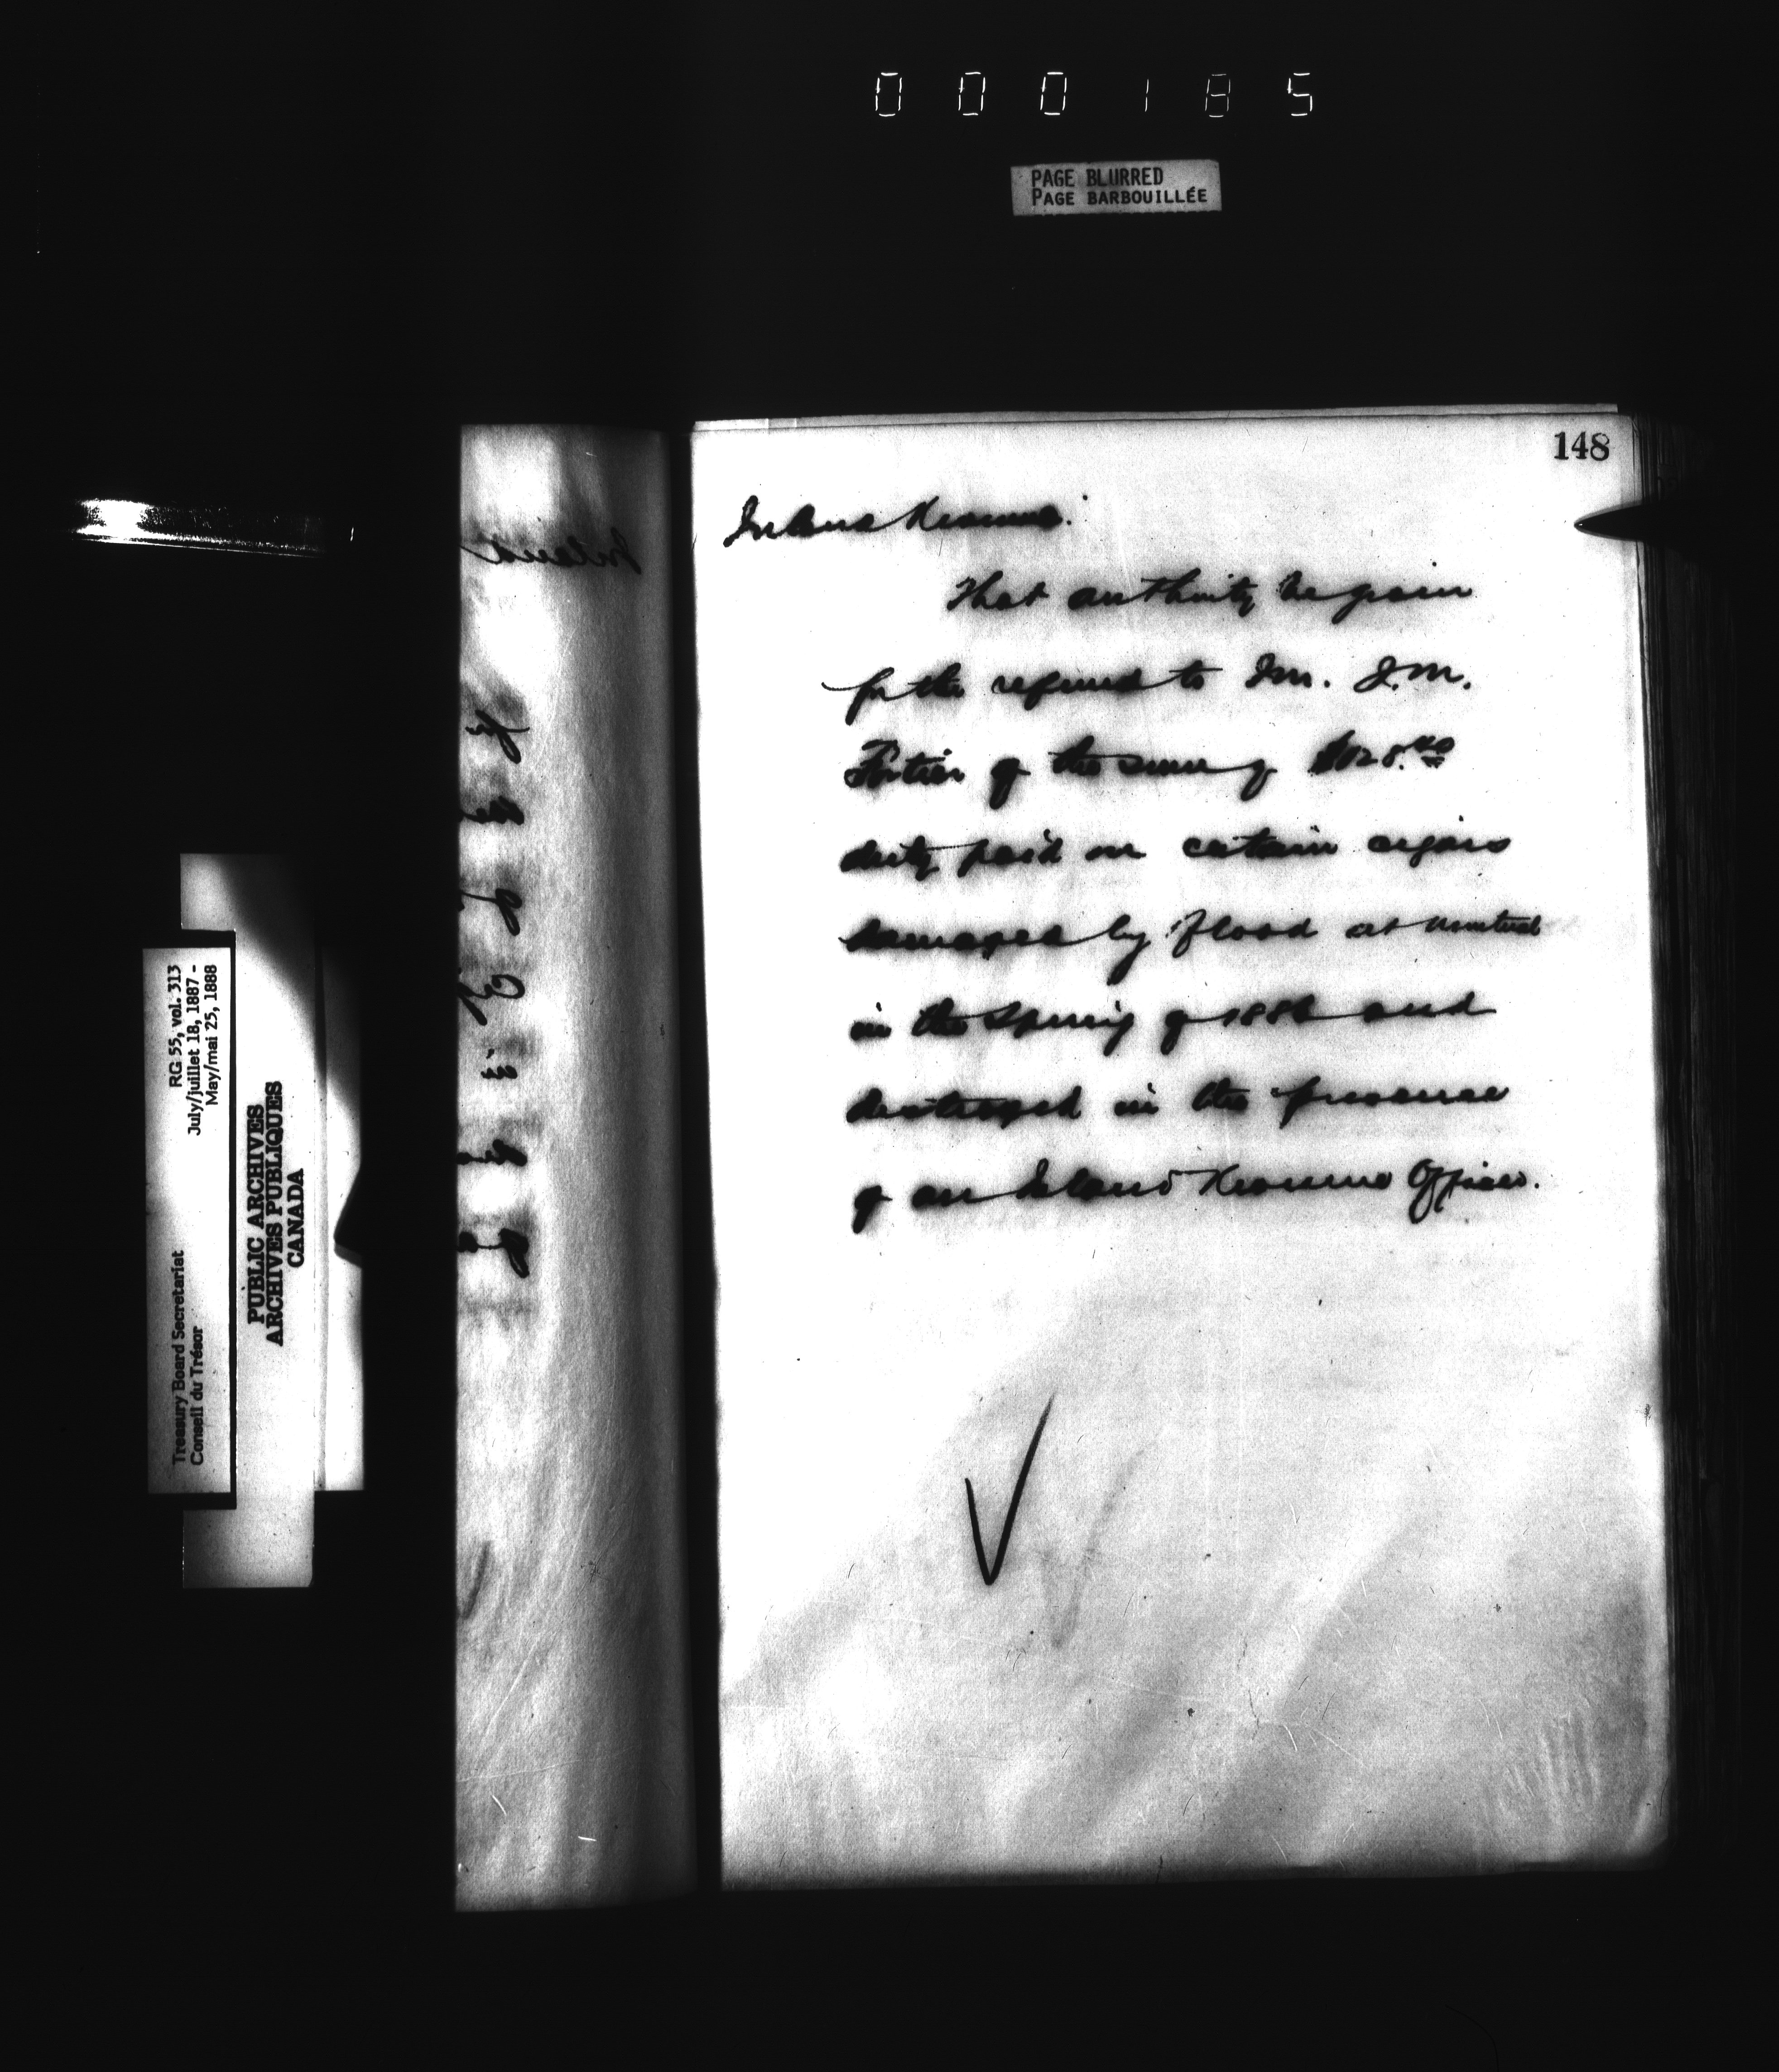 000185
PAGE BLURRED
PAGE BARBOUILLÉE
148
Inland Revenue.
That authority be given
for the refund to Mr. J. M.
Fortier of the sum of
duty paid on certain cigars
damaged by flood at Montreal
in the Spring of 1886 and
destroyed in the presence
of an Inland Revenue Officer.
Inland
RG 55, vol. 313
July/juillet 18, 1887 -
May/mai 25, 1888
Treasury Board Secretariat
Conseil du Trésor
PUBLIC ARCHIVES
ARCHIVES PUBLIQUES
CANADA